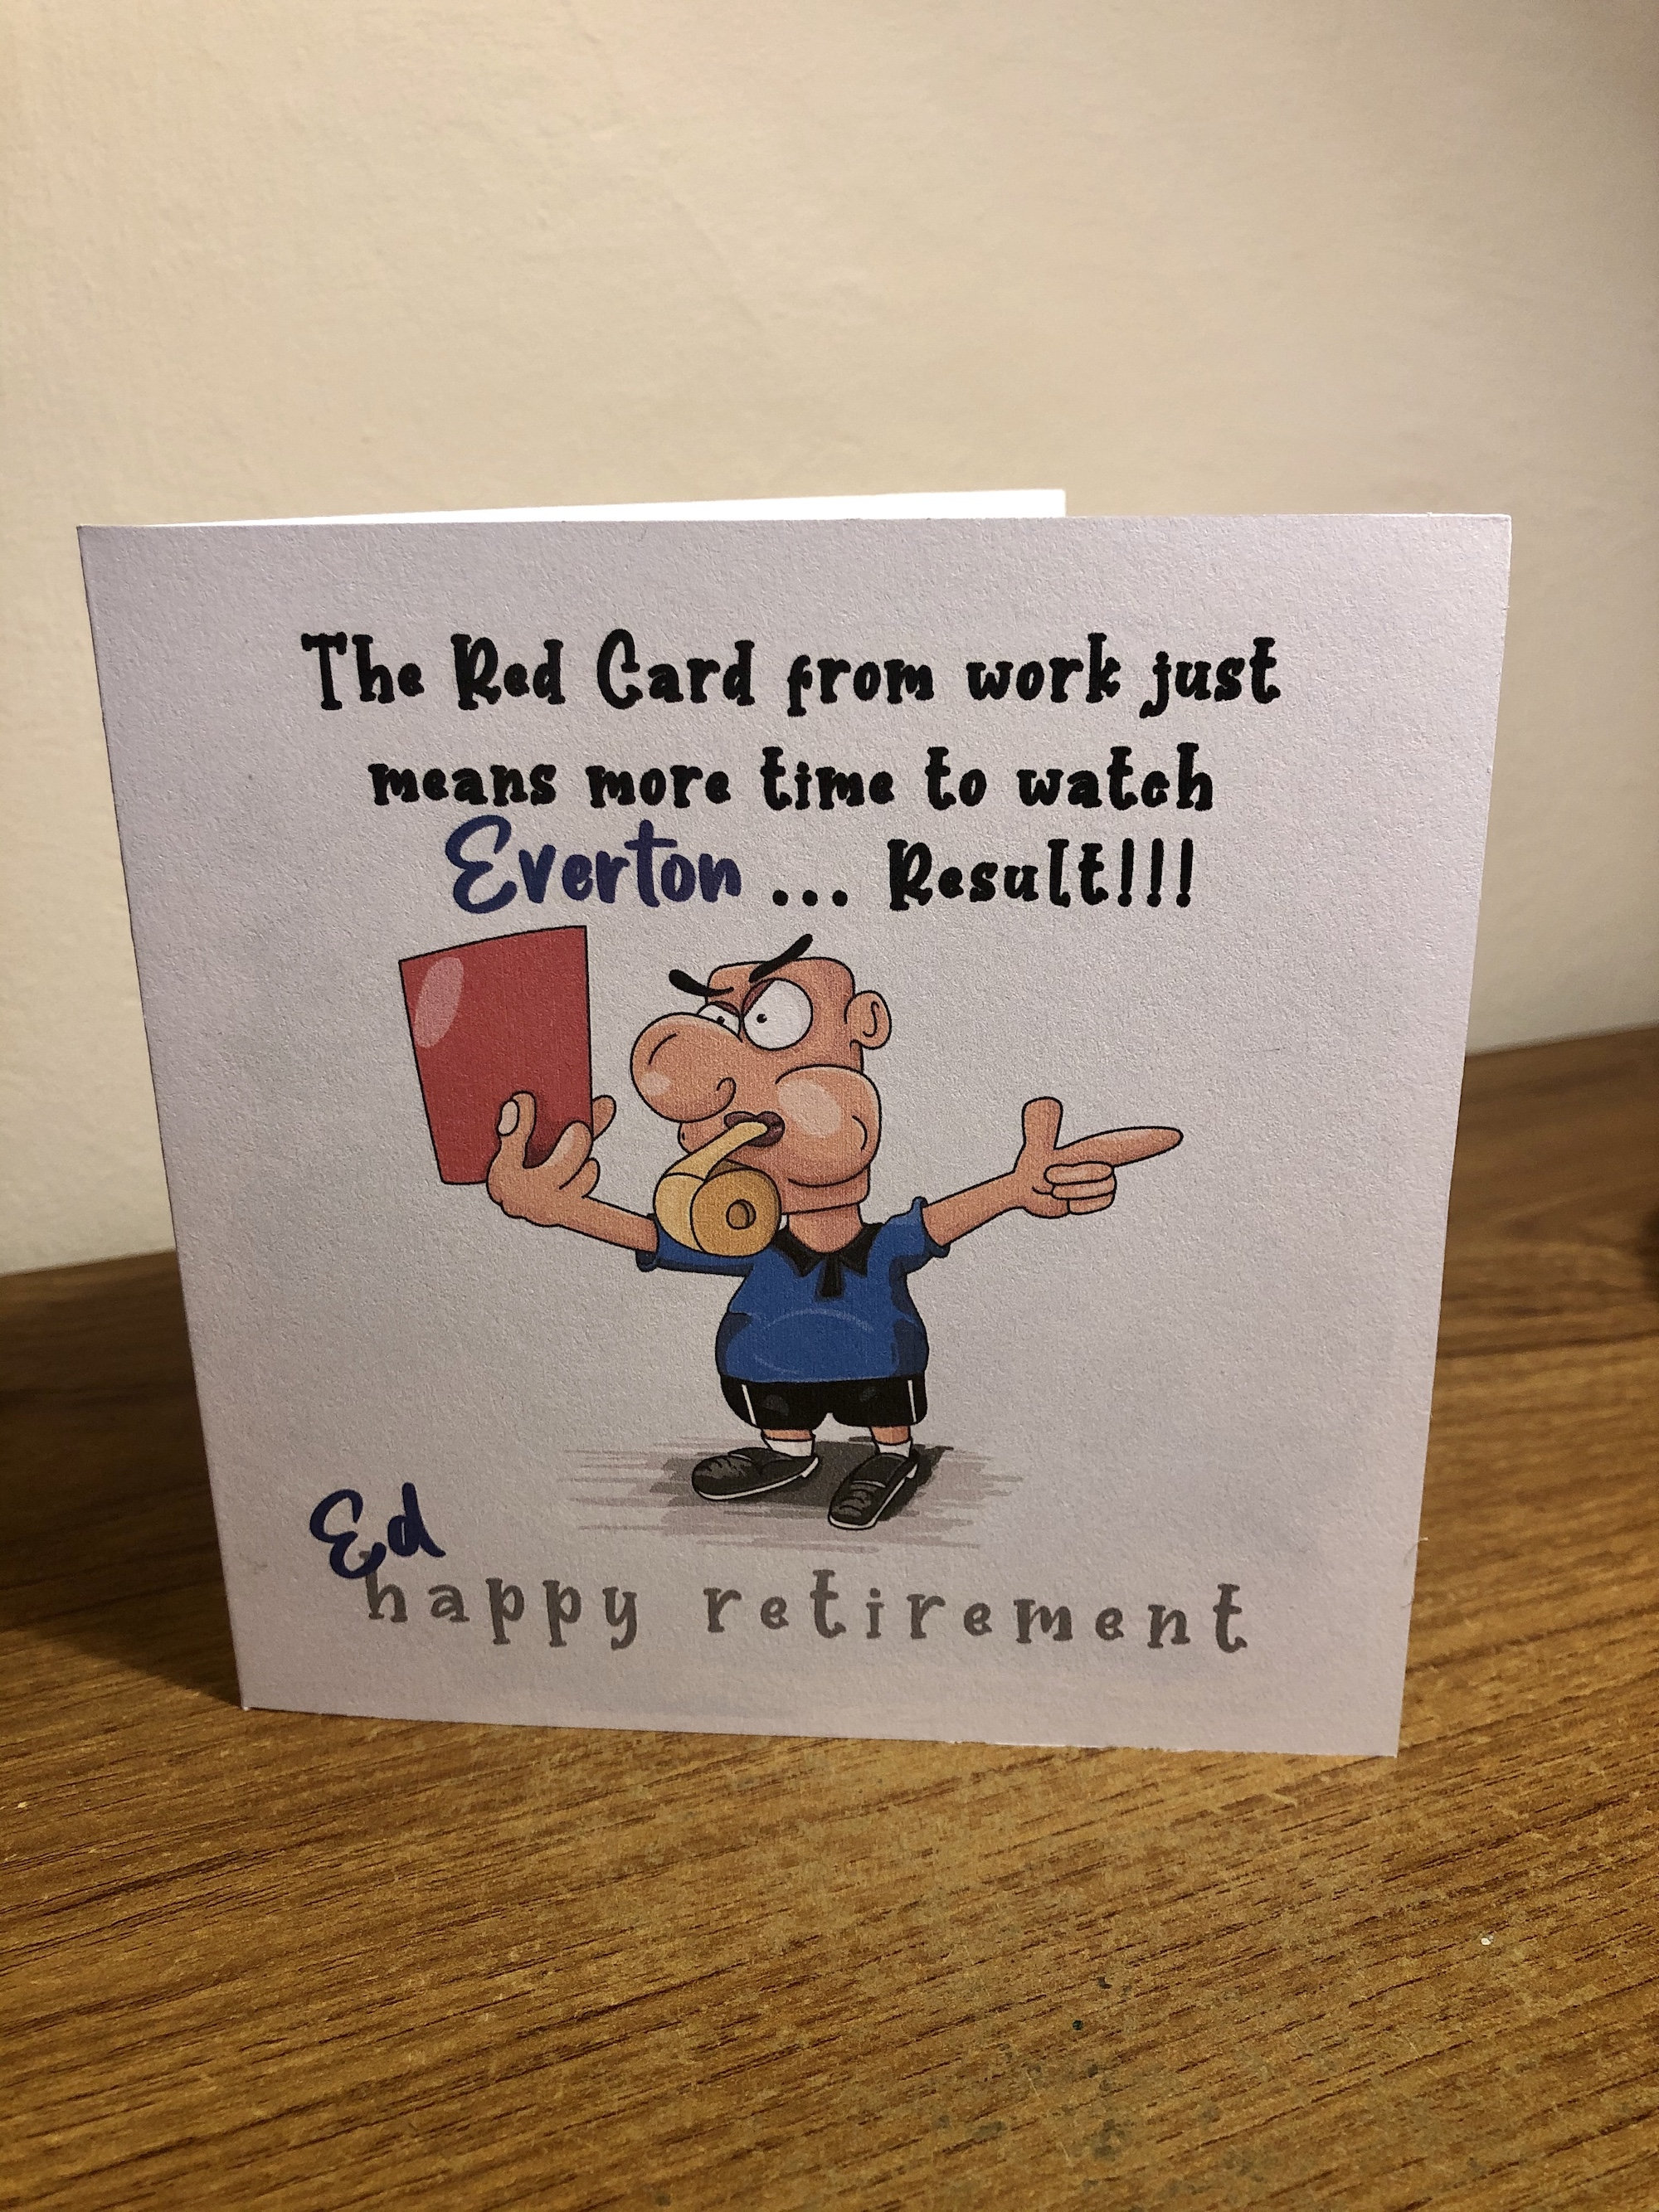 The Red Card from work just
means more time to watch
Everton ... Result!!!
Ed
happy retirement